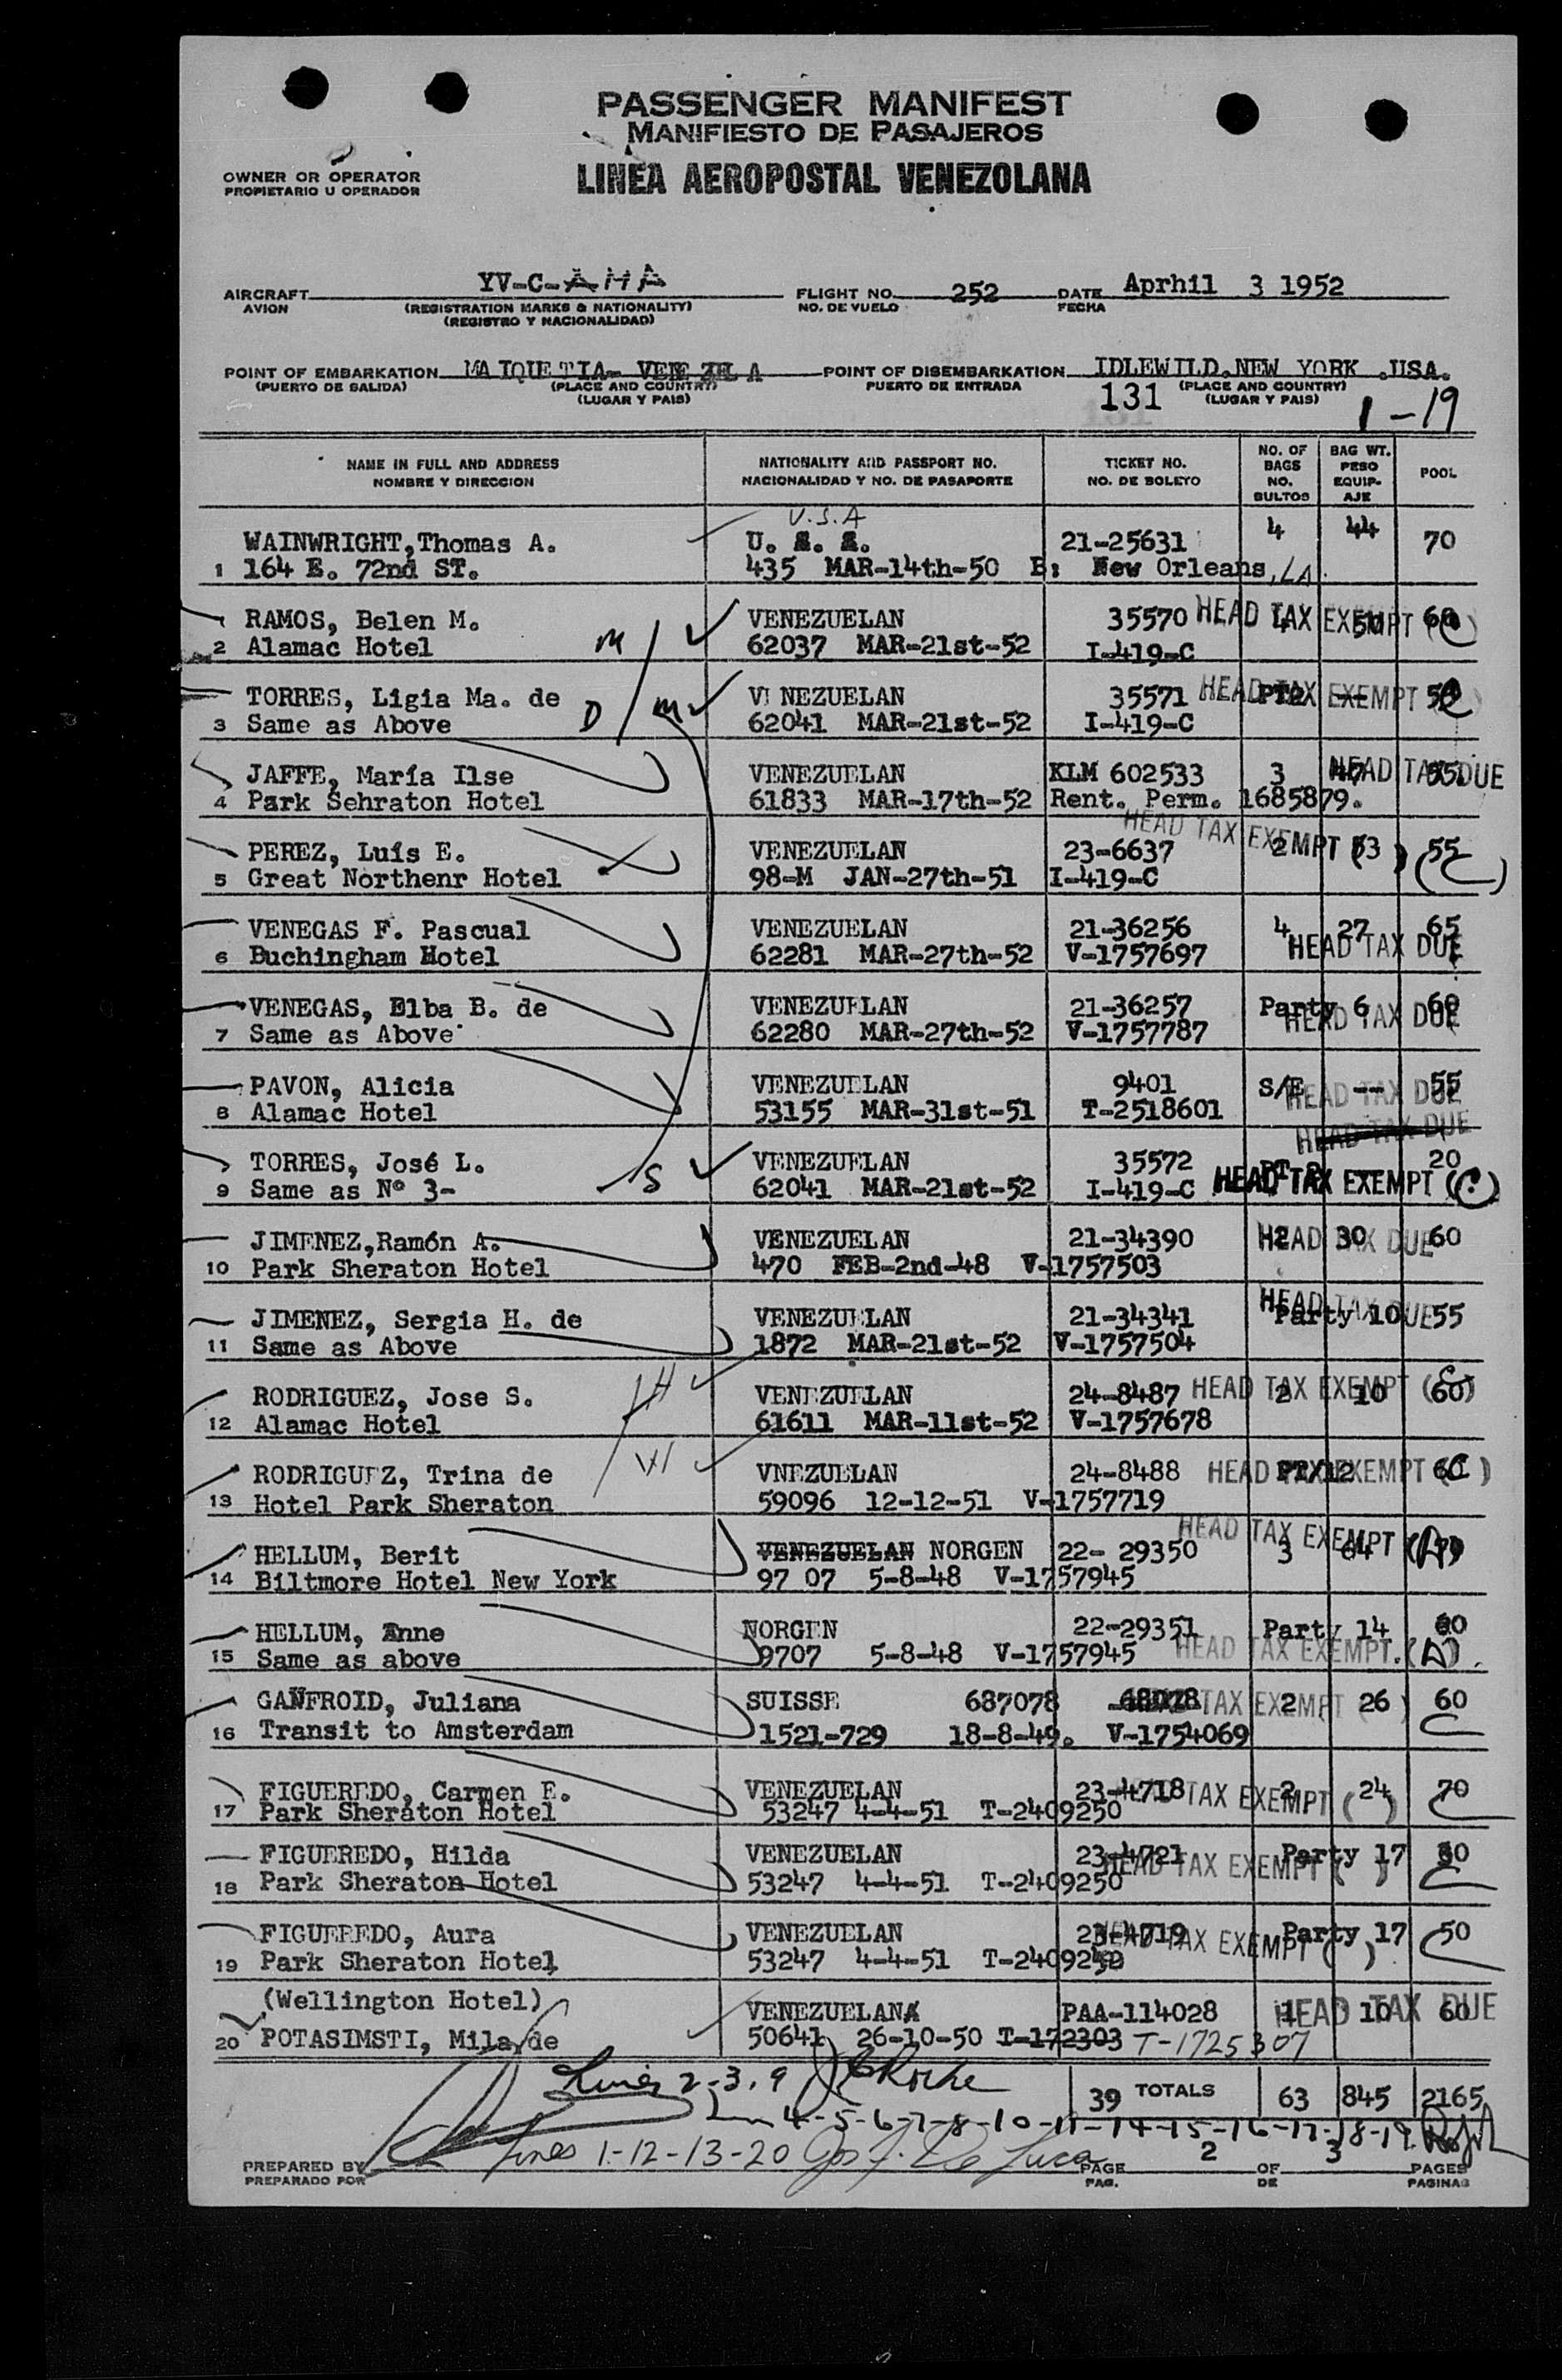 PASSENGER MANIFEST
MANIFIESTO DE PASAJEROS
OWNER OR OPERATOR
PROPIETARIO U OPERADOR
LINEA AEROPOSTAL VENEZOLANA
AIRCRAFT YV-C-AHA FLIGHT NO. 252 DATE Aprhil 3 1952
AVION (REGISTRATION MARKS & NATIONALITY) NO. DE VUELO FECHA
(REGISTRO Y NACIONALIDAD)
POINT OF EMBARKATION MAIQUETIA- VENEZELA POINT OF DISEMBARKATION IDLEWILD.NEW YORK .USA.
(PUERTO DE SALIDA) (PLACE AND COUNTRY) PUERTO DE ENTRADA (PLACE AND COUNTRY)
(LUGAR Y PAIS) 131 (LUGAR Y PAIS) 1-19
NAME IN FULL AND ADDRESS NATIONALITY AND PASSPORT NO. TICKET NO. NO. OF BAGS BAG WT. POOL
NOMBRE Y DIRECCION NACIONALIDAD Y NO. DE PASAPORTE NO. DE BOLETO NO. BULTOS PESO EQUIPAJE
U.S.A
WAINWRIGHT,Thomas A. U. S. A. 21-25631 4 44 70
1 164 E. 72nd ST. 435 MAR-14th-50 B: New Orleans, LA.
RAMOS, Belen M. VENEZUELAN 35570 HEAD TAX EXEMPT (C) 4 50 60
2 Alamac Hotel M 62037 MAR-21st-52 I-419-C
TORRES, Ligia Ma. de VENEZUELAN 35571 HEAD TAX EXEMPT PT2 --
3 Same as Above D M 62041 MAR-21st-52 I-419-C
JAFFE, María Ilse VENEZUELAN KLM 602533 3 HEAD TAX DUE 55
4 Park Sehraton Hotel 61833 MAR-17th-52 Rent. Perm. 1685879.
HEAD TAX EXEMPT (C)
PEREZ, Luís E. VENEZUELAN 23-6637 2 53 55
5 Great Northenr Hotel 98-M JAN-27th-51 I-419-C
VENEGAS F. Pascual VENEZUELAN 21-36256 4 27 65
6 Buchingham Hotel 62281 MAR-27th-52 V-1757697 HEAD TAX DUE
VENEGAS, Elba B. de VENEZUELAN 21-36257 Party 6 60
7 Same as Above 62280 MAR-27th-52 V-1757787 HEAD TAX DUE
PAVON, Alicia VENEZUELAN 9401 S/E -- 55
8 Alamac Hotel 53155 MAR-31st-51 T-2518601 HEAD TAX DUE
HEAD TAX DUE
TORRES, José L. VENEZUELAN 35572 20
9 Same as Nº 3- S 62041 MAR-21st-52 I-419-C HEAD TAX EXEMPT (C)
JIMENEZ,Ramón A. VENEZUELAN 21-34390 2 30 60 HEAD TAX DUE
10 Park Sheraton Hotel 470 FEB-2nd-48 V-1757503
HEAD TAX DUE
JIMENEZ, Sergia H. de VENEZUELAN 21-34341 Party 10 55
11 Same as Above 1872 MAR-21st-52 V-1757504
RODRIGUEZ, Jose S. H VENEZUELAN 24-8487 HEAD TAX EXEMPT (C) 2 10 60
12 Alamac Hotel 61611 MAR-11st-52 V-1757678
RODRIGUEZ, Trina de W VNEZUELAN 24-8488 HEAD TAX EXEMPT (C) PT/12 60
13 Hotel Park Sheraton 59096 12-12-51 V-1757719
HEAD TAX EXEMPT (A)
HELLUM, Berit VENEZUELAN NORGEN 22- 29350 3 64
14 Biltmore Hotel New York 97 07 5-8-48 V-1757945
HELLUM, Anne NORGEN 22-29351 Party 14 60
15 Same as above 9707 5-8-48 V-1757945 HEAD TAX EXEMPT. (A).
GANFROID, Juliana SUISSE 687078 68078 HEAD TAX EXEMPT ( ) 2 26 60
16 Transit to Amsterdam 1521-729 18-8-49. V-1754069
FIGUEREDO, Carmen E. VENEZUELAN 23-4718 HEAD TAX EXEMPT ( ) 2 24 70
17 Park Sheraton Hotel 53247 4-4-51 T-2409250
FIGUEREDO, Hilda VENEZUELAN 23-4721 Party 17 60
18 Park Sheraton Hotel 53247 4-4-51 T-2409250 HEAD TAX EXEMPT ( )
FIGUEREDO, Aura VENEZUELAN 23-4719 Party 17 50
19 Park Sheraton Hotel 53247 4-4-51 T-2409250 HEAD TAX EXEMPT ( )
(Wellington Hotel) VENEZUELANA PAA-114028 1 10 60 HEAD TAX DUE
20 POTASIMSTI, Mila de 50641 26-10-50 T-172303 T-1725307
Lines 2-3, 9 39 TOTALS 63 845 2165
4-5-6-7-8-10-11-14-15-16-17-18-19
Lines 1-12-13-20 Jos J. De Luca
PREPARED BY PAGE 2 OF 3 PAGES
PREPARADO POR PAG. DE PAGINAS